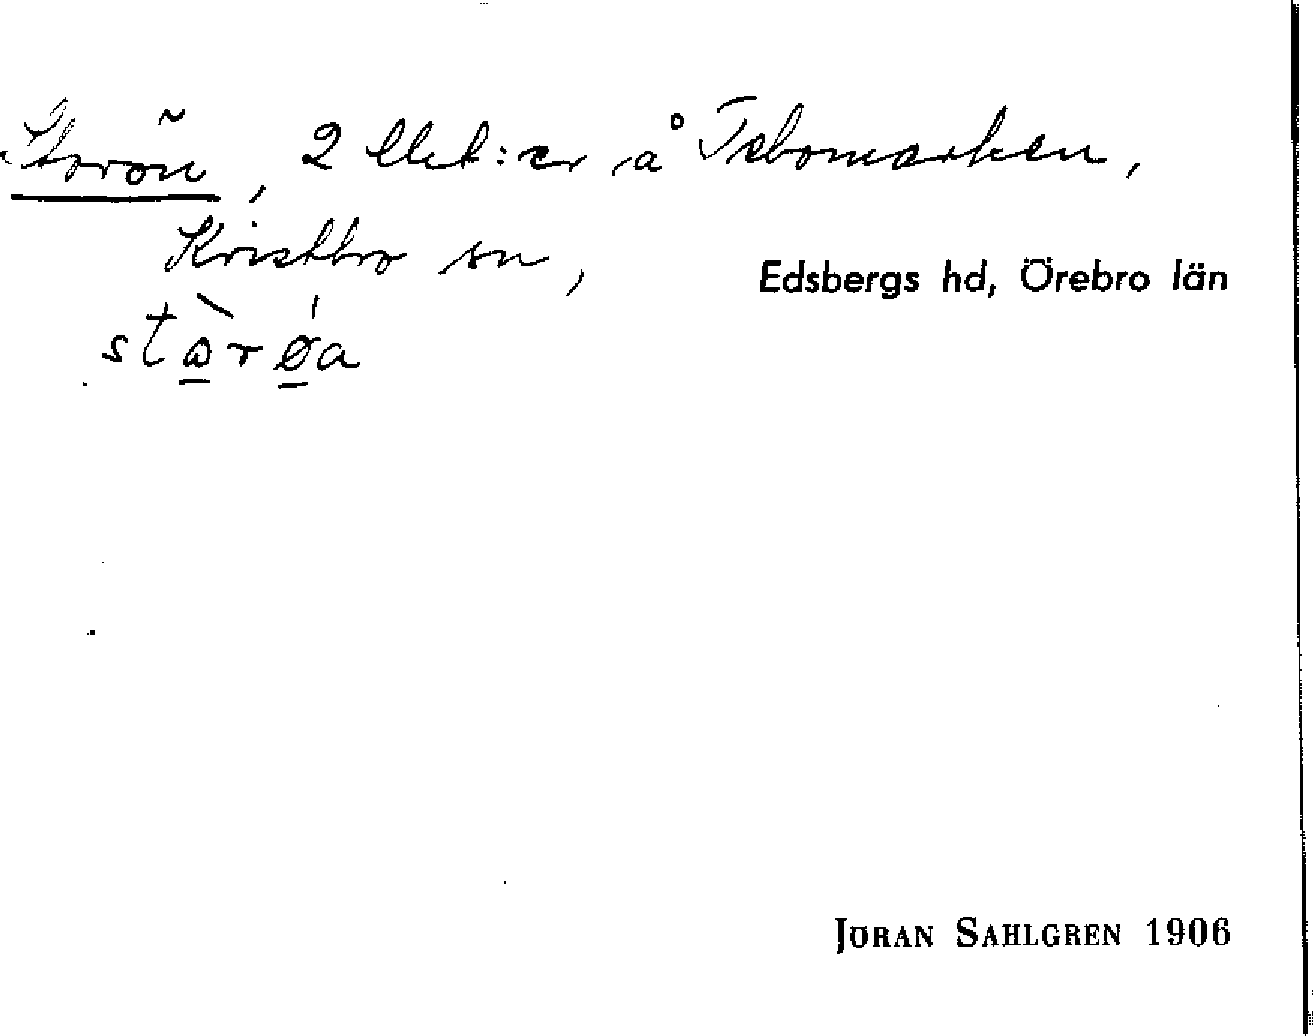 Storön, 2 å Tebomarken,
Kvistbro sn,
Edsbergs hd, Örebro län
JÖRAN SAHLGREN 1906